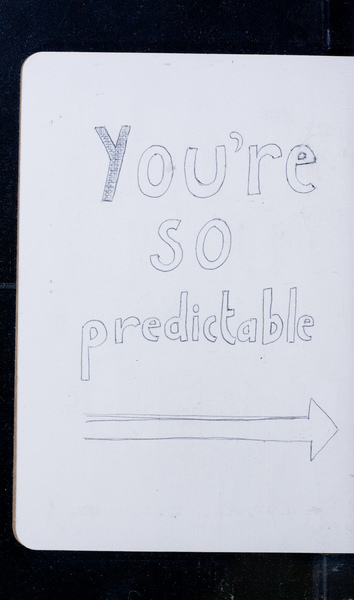 You're
so
predictable